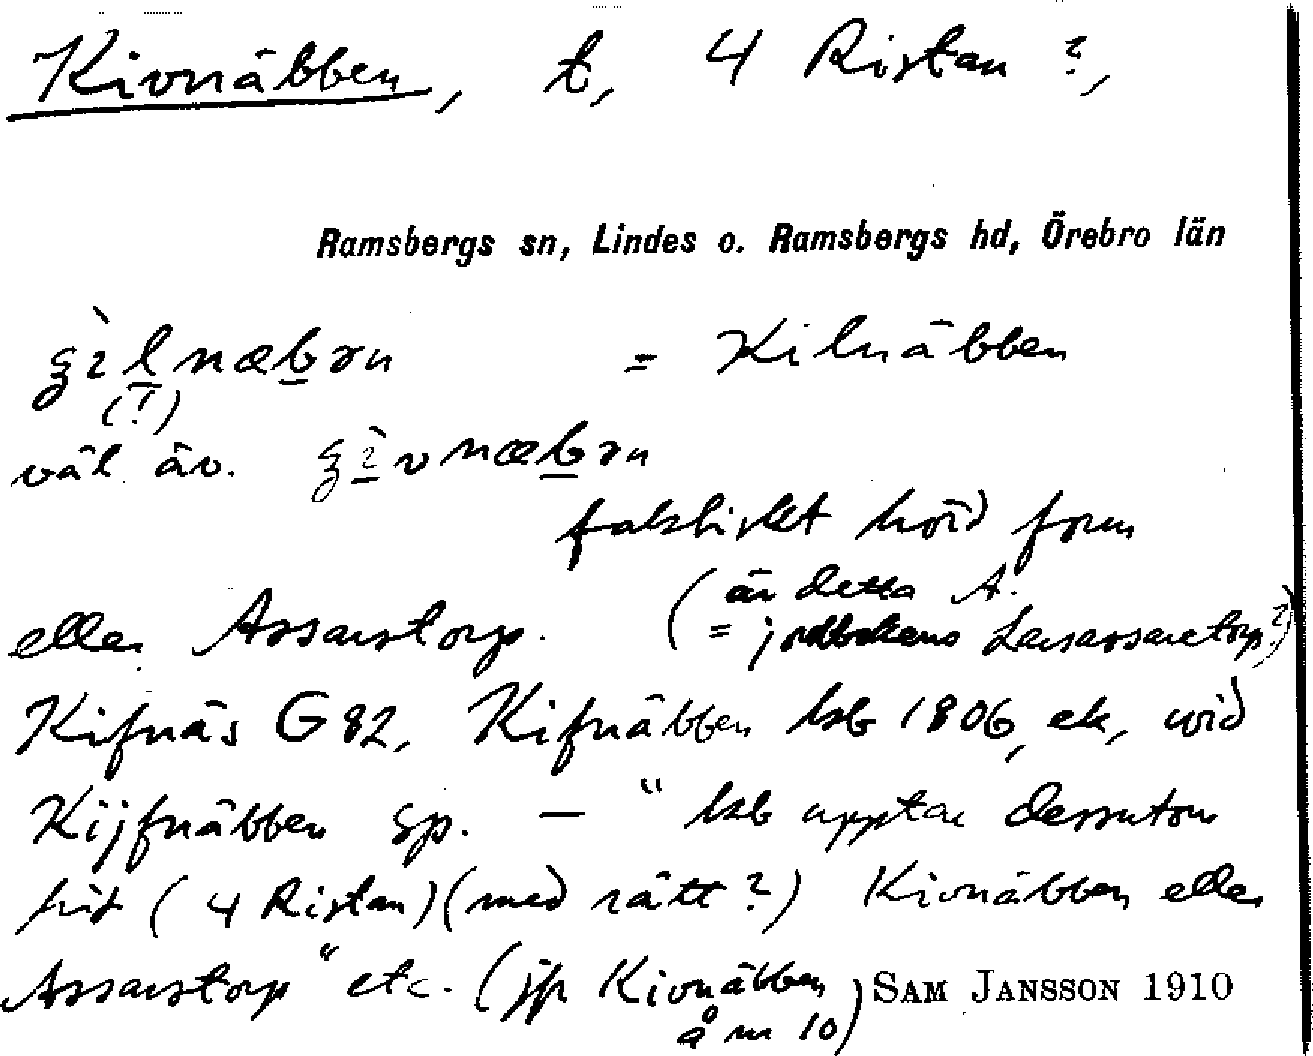 Kivnäbben, t, 4 Ristan ?,
Ramsbergs sn, Lindes o. Ramsbergs hd, Örebro län
= Kilnäbben
(?)
väl äv.
faktiskt hörd form
(är detta A.
eller Assarstorp. = jordbokens Larsassarstorp?)
Kifnäs G 82, Kifnäbben lsb 1806, ek, wid
Kijfnäbben sp. — " lsb upptar dessutom
hit (4 Ristan) (med rätt?) Kivnäbben eller
Assarstorp " etc. (jfr Kivnäbben
å nr 10) SAM JANSSON 1910